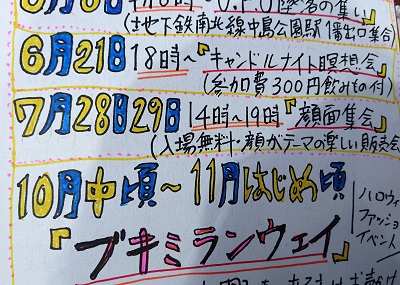 (地下鉄南北線中島公園駅1番出口集合
6月21日18時〜『キャンドルナイト瞑想会』
(参加費300円飲みもの付)
7月28日29日14時〜19時『顔面集会』
(入場無料・顔がテーマの楽しい販売会
10月中頃〜11月はじめ頃
『ブキミランウェイ』
ハロウィ
ファッショ
イベント